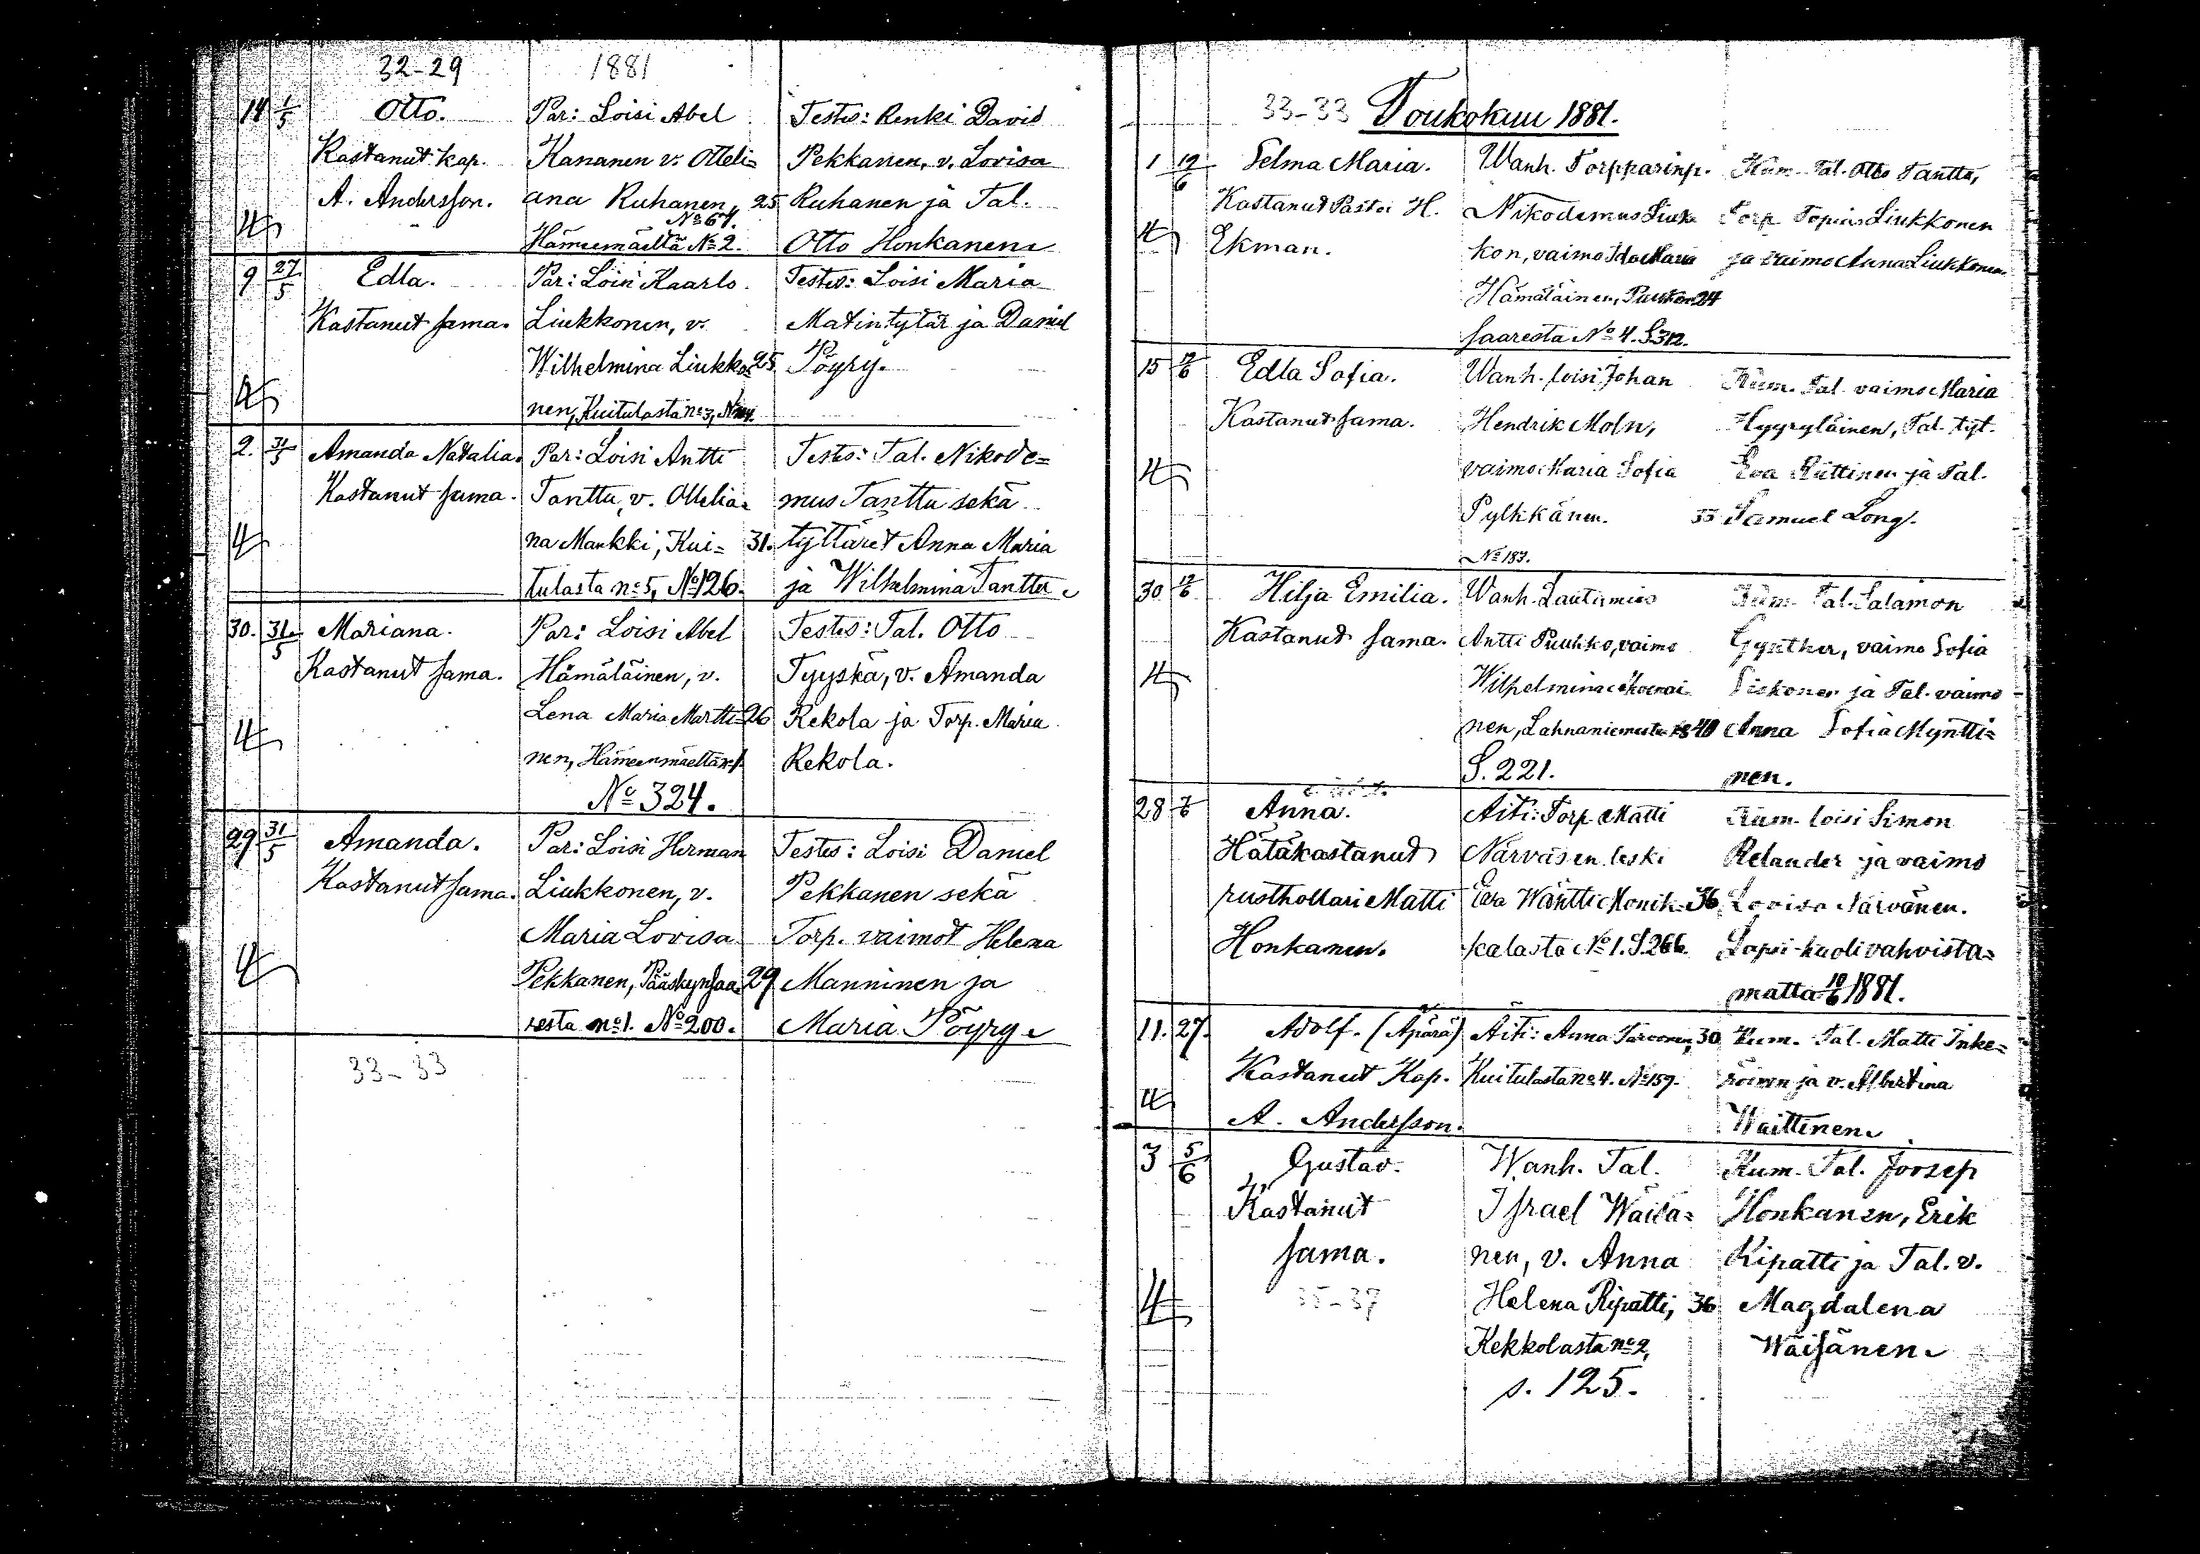 32-29 1881
14 1/5 Otto. Par: Loisi Abel Testes: Renki David
Kastanut kap. Kananen v. Otteli= Pekkanen, v. Lovisa
A. Andersson. ana Ruhanen, 25 Ruhanen ja Tal.
No 67.
Hämeenmäeltä No 2. Otto Honkanen
9 27/5 Edla. Par: Loisi Kaarlo Testes: Loisi Maria
Kastanut sama. Liukkonen, v. Matintytär ja Daniel
Wilhelmina Liukko= 25 Pöyry.
nen, Kuitulasta No 3,
2. 31/5 Amanda Natalia. Par: Loisi Antti Testes: Tal. Nikode=
Kastanut sama. Tanttu, v. Ottelia= mus Tanttu sekä
na Mankki, Kui= 31. tyttäret Anna Maria
tulasta No 5, No 126. ja Wilhelmina Tanttu
30. 31/5 Mariana. Par: Loisi Abel Testes: Tal. Otto
Kastanut sama. Hämäläinen, v. Tyyskä, v. Amanda
Lena Maria Martti= 26 Rekola ja Torp. Maria
nen, Hämeenmäeltä No 1 Rekola.
No 324.
29 31/5 Amanda. Par: Loisi Herman Testes: Loisi Daniel
Kastanut sama. Liukkonen, v. Pekkanen sekä
Maria Lovisa Torp. vaimot Helena
Pekkanen, Pääskynsaa= 29 Manninen ja
resta No 1. No 200. Maria Pöyry
33-33
33-33 Toukokuu 1881.
1 12/6 Selma Maria. Wanh. Torpparinp. Kum. Tal. Otto Tanttu,
Kastanut Pastori H. Nikodemus Liuk Torp. Topias Liukkonen
Ekman. kon, vaimo Ida Maria ja vaimo Anna Liukkonen
Hämäläinen, 24
saaresta No 4. S. 312.
15 12/6 Edla Sofia. Wanh. loisi Johan Kum. Tal. vaimo Maria
Kastanut sama. Hendrik Moln, Hyyryläinen, Tal. tyt.
vaimo Maria Sofia Eva Riittinen ja Tal.
Pylkkänen. 33 Samuel Long.
No 183.
30 12/6 Hilja Emilia. Wanh. Lautamies Kum. Tal. Salamon
Kastanut sama. Antti Puuhko, vaimo Gynther, vaimo Sofia
Wilhelmina Siskonen ja Tal. vaimo
nen, Lahnaniemestä 40 Anna Sofia Myntti=
S. 221. nen.
28 7/6 Anna. Äiti: Torp. Matti Kum. loisi Simon
Hätäkastanut Närväsen leski Relander ja vaimo
rusthollari Matti Eva Wäntti Monik= 36 Lovisa Närvänen.
Honkanen. kalasta No 1. S. 266. Lapsi kuoli vahvista=
matta 10/6 1881.
11. 27. Adolf. (Äpärä) Äiti: Anna Parvonen, 30 Kum. Tal. Matti Inke=
Kastanut Kap. Kuitulasta No 4. No 159. röinen ja v. Albertina
A. Andersson. Waittinen
3 5/6 Gustav. Wanh. Tal. Kum. Tal. Joosep
Kastanut Israel Wäisä= Honkanen, Erik
sama. nen, v. Anna Ripatti ja Tal. v.
35-37 Helena Ripatti, 36 Magdalena
Kekkolasta No 2, Wäisänen
s. 125.